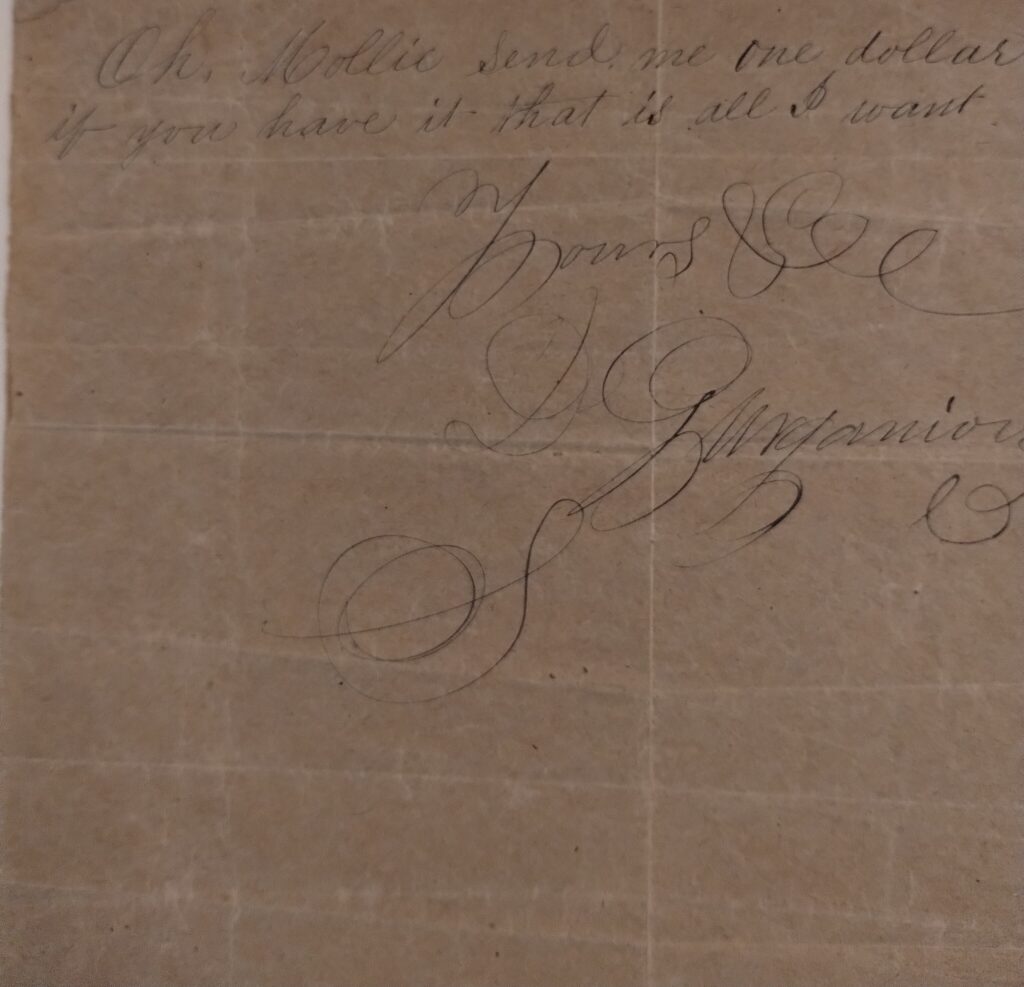 Oh. Mollie send me one dollar
if you have it that is all I want
Yours &C
D